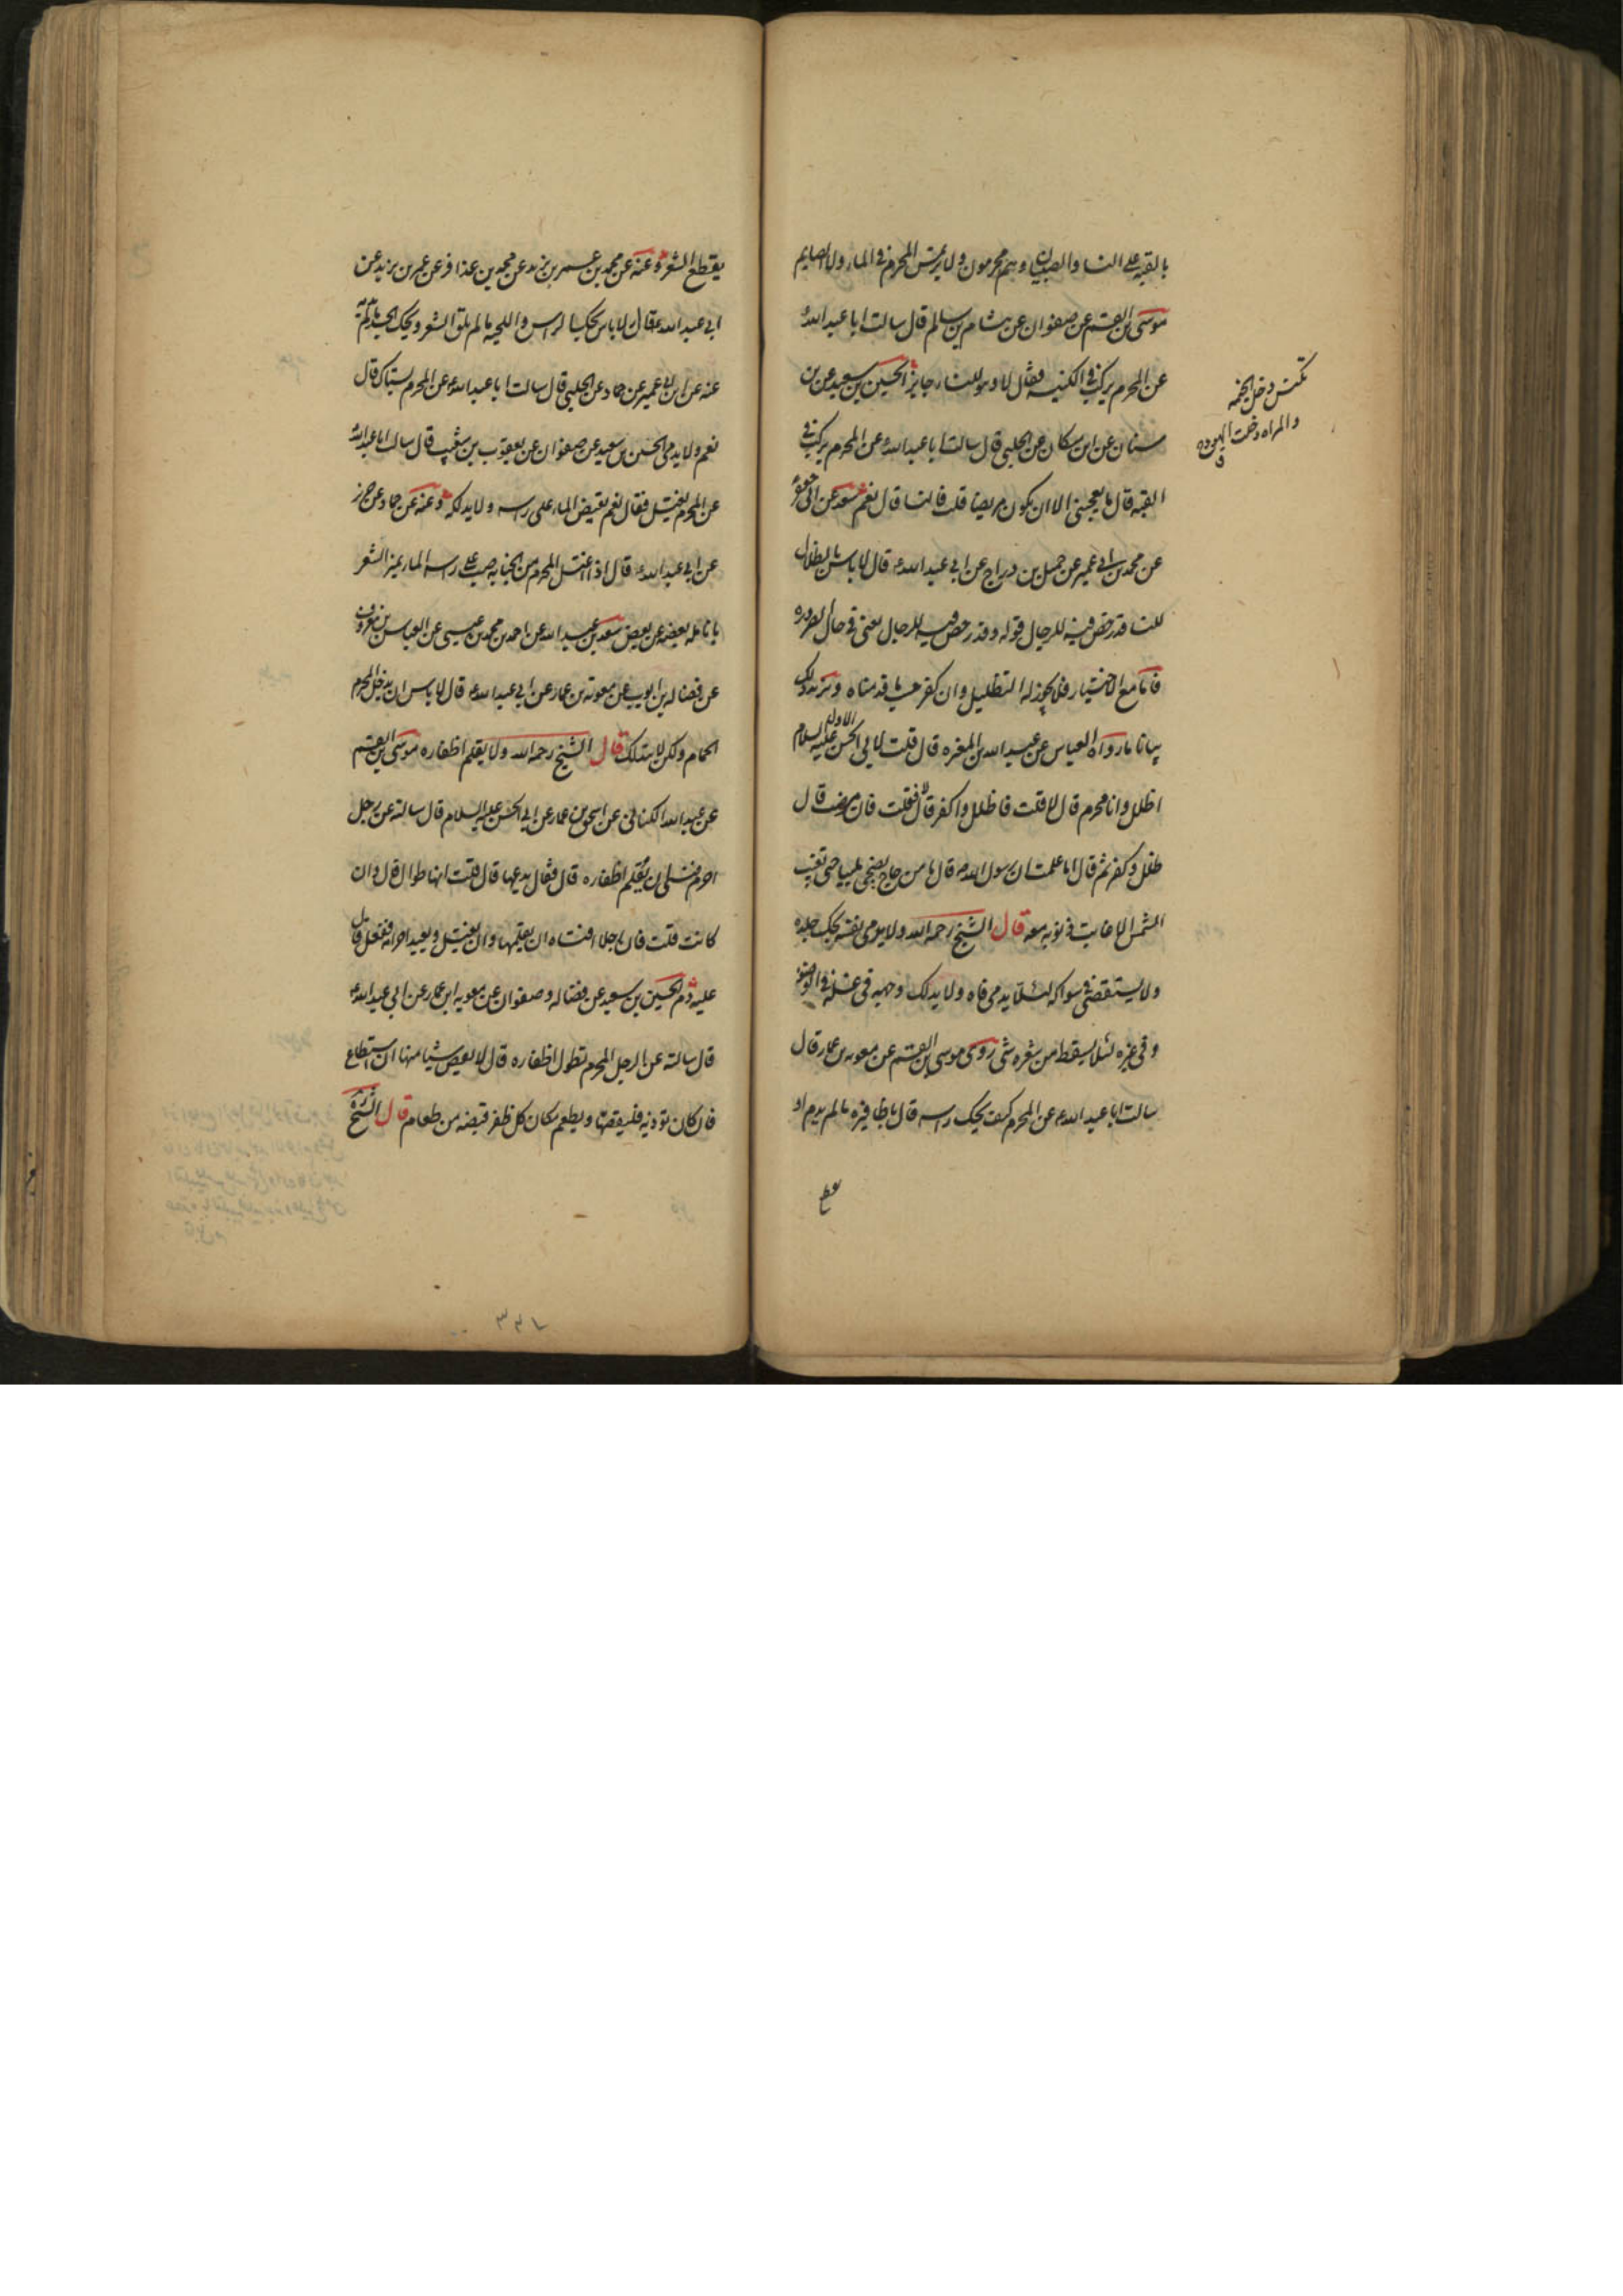 بالقبه على النسا والصبيان وهم محرمون ولا يرتمس المحرم في الماء ولا الصايم
موسى بن القسم عن صفوان عن هشام بن سالم قال سالت ابا عبد الله ع
عن المحرم يركب في الكنيسه فقال لا وهو للنساء جايز الحسين بن سعيد عن بن
سنان عن ابن مسكان عن الحلبي قال سالت ابا عبد الله ع عن المحرم يركب في
القبه قال ما يعجبني الا ان يكون مريضا قلت فالنسا قال نعم سعد عن ابي جعفر
عن محمد بن ابي عمير عن جميل بن دراج عن ابي عبد الله ع قال لا باس بالظلال
للنسا قد رخص فيه للرجال قوله وقد رخص فيه للرجال يعني في حال الضروره
فاما مع الاختيار فلا يجوز له التظليل وان كفر حسب ما قدمناه ويزيد ذلك
بيانا ما رواه العباس عن عبد الله بن المغيره قال قلت لابي الحسن الاول عليه السلام
اظلل وانا محرم قال لا قلت فاظلل واكفر قال لا فقلت فان مرضت قال
ظلل وكفر ثم قال اما علمت ان رسول الله ص قال ما من حاج يضحي ملبيا حتى تغيب
الشمس الا غابت ذنوبه معه قال الشيخ رحمه الله ولا يدمي نفسه بحك جلده
ولا يستقصي في سواكه لئلا يدمي فاه ولا يدلك وجهه في غسله في الوضوء
وفي غيره لئلا يسقط من شعره شي روى موسى بن القسم عن معويه بن عمار قال
سالت ابا عبد الله ع عن المحرم كيف يحك راسه قال باظافيره ما لم يدم او
تكنس دخل الخيمه
والمراه دخلت الهودج
يقطع الشعر وعنه عن محمد بن عمر بن يزيد عن محمد بن عذافر عن عمر بن يزيد عن
ابي عبد الله ع قال لا باس بحك الراس واللحيه ما لم يلق الشعر ويحك الجسد ما لم يدمه
عنه عن ابن ابي عمير عن حماد عن الحلبي قال سالت ابا عبد الله ع عن المحرم يستاك قال
نعم ولا يدمي الحسين بن سعيد عن صفوان عن يعقوب بن شعيب قال سالت ابا عبد الله ع
عن المحرم يغتسل فقال نعم يفيض الماء على راسه ولا يدلكه وعنه عن حماد عن حريز
عن ابي عبد الله ع قال اذا اغتسل المحرم من الجنابه صب على راسه الماء يميز الشعر
بانامله بعضه عن بعض سعد بن عبد الله عن احمد بن محمد بن عيسى عن العباس بن معروف
عن فضاله بن ايوب عن معويه بن عمار عن ابي عبد الله ع قال لا باس ان يدخل المحرم
الحمام ولكن لا يتدلك قال الشيخ رحمه الله ولا يقلم اظفاره موسى بن القسم
عن عبد الله الكناني عن اسحق بن عمار عن ابي الحسن عليه السلام قال سالته عن رجل
احرم فنسي ان يقلم اظفاره قال فقال يدعها قال قلت انها طوال قال وان
كانت قلت فان رجلا افتاه ان يقلمها وان يغتسل ويعيد احرامه ففعل قال
عليه دم الحسين بن سعيد عن فضاله وصفوان عن معويه ابن عمار عن ابي عبد الله ع
قال سالته عن الرجل المحرم تطول اظفاره قال لا يقص شيئا منها ان استطاع
فان كان تؤذيه فليقصها ويطعم مكان كل ظفر قبضه من طعام قال الشيخ
٣٣١